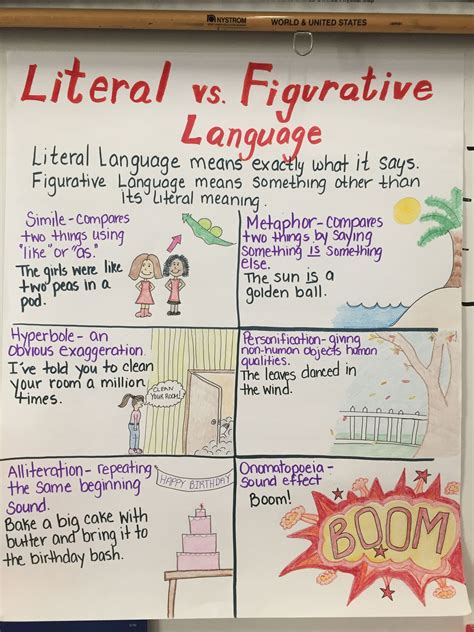 NYSTROM
WORLD & UNITED STATES
Literal vs. Figurative
Language
Literal Language means exactly what it says.
Figurative Language means something other than
its literal meaning.
Simile - compares
two things using
"like" or "as."
The girls were like
two peas in a
pod.
Metaphor - compares
two things by saying
something is something
else.
The sun is a
golden ball.
Hyperbole - an
obvious exaggeration.
I've told you to clean
your room a million
times.
CLEAN
YOUR ROOM!
Personification - giving
non-human objects human
qualities.
The leaves danced in
the wind.
Alliteration - repeating
the same beginning
sound.
Bake a big cake with
butter and bring it to
the birthday bash.
HAPPY BIRTHDAY
Onomatopoeia -
sound effect
Boom!
BOOM